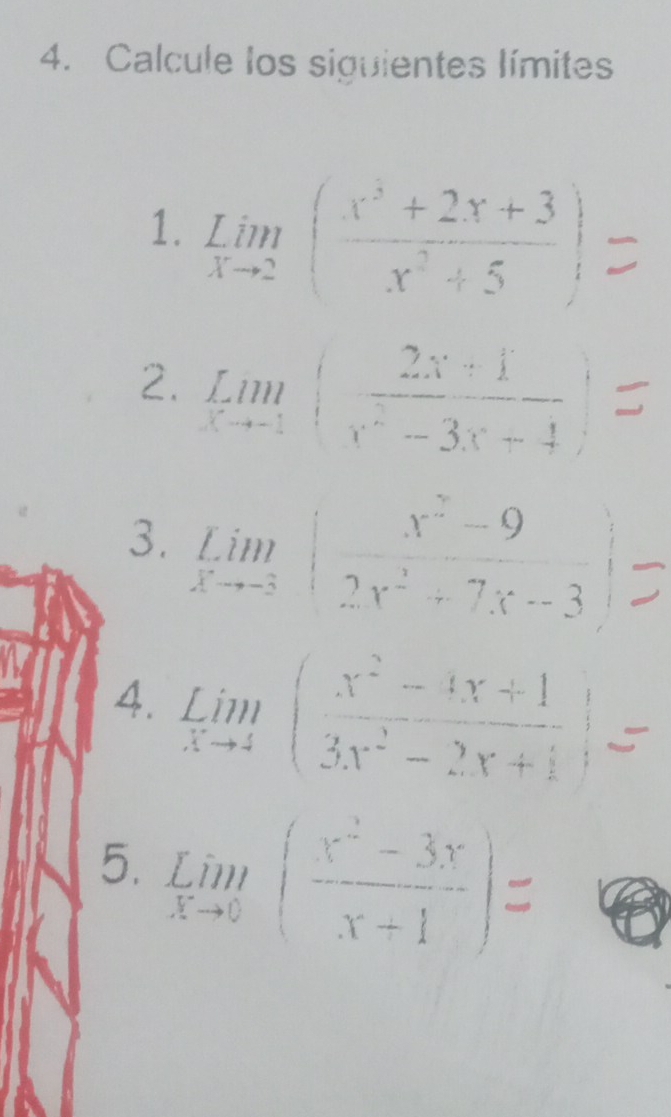 4. Calcule los siguientes límites
1. Lim X→2 ( x³ + 2x + 3 / x² + 5 ) =
2. Lim X→-1 ( 2x + 1 / x² - 3x + 4 ) =
3. Lim X→-3 ( x² - 9 / 2x² + 7x - 3 ) =
4. Lim X→4 ( x² - 4x + 1 / 3x² - 2x + 1 ) =
5. Lim X→0 ( x² - 3x / x + 1 ) =